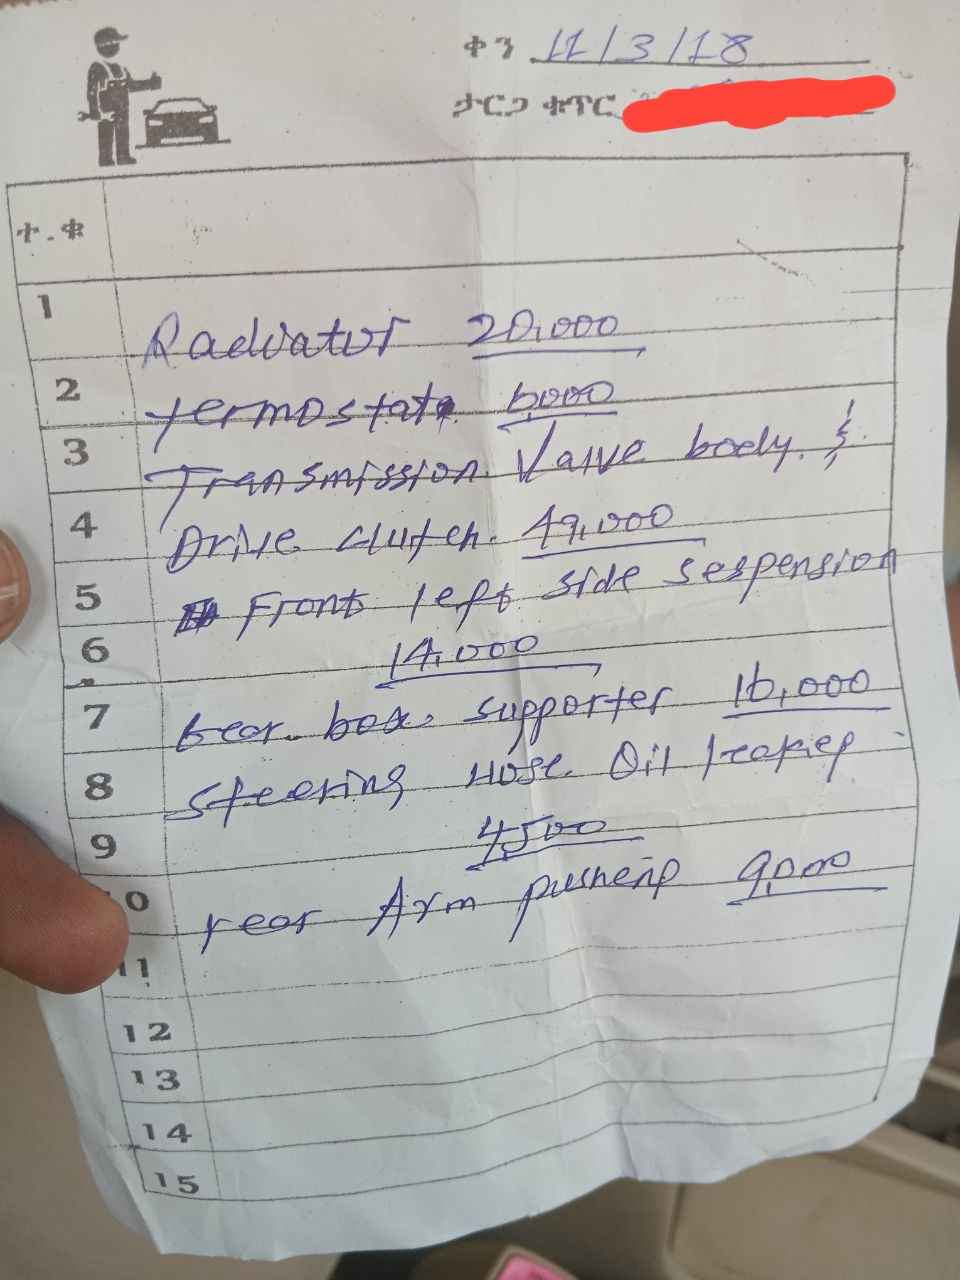 ቀን 11/3/18
ታርጋ ቁጥር
ተ.ቁ
1
Radiator 20,000
2
termostat. 6,000
3
Transmission. Valve body. &
4
Drive clutch. 49,000
5
Front left side sespension
6
14,000
7
Gear box. supporter 16,000
8
Steering Hose. Oil
9
4,500
10
rear Arm 9,000
11
12
13
14
15